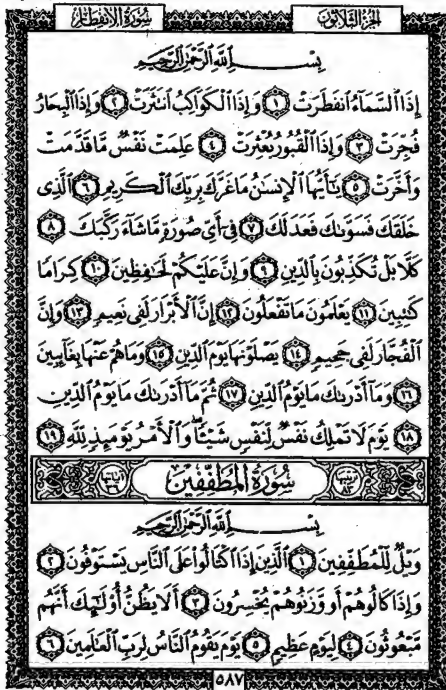 الجزء الثلاثون
سورة الانفطار
بسم الله الرحمن الرحيم
إِذَا ٱلسَّمَآءُ ٱنفَطَرَتْ ١ وَإِذَا ٱلْكَوَاكِبُ ٱنتَثَرَتْ ٢ وَإِذَا ٱلْبِحَارُ
فُجِّرَتْ ٣ وَإِذَا ٱلْقُبُورُ بُعْثِرَتْ ٤ عَلِمَتْ نَفْسٌ مَّا قَدَّمَتْ
وَأَخَّرَتْ ٥ يَٰٓأَيُّهَا ٱلْإِنسَٰنُ مَا غَرَّكَ بِرَبِّكَ ٱلْكَرِيمِ ٦ ٱلَّذِى
خَلَقَكَ فَسَوَّىٰكَ فَعَدَلَكَ ٧ فِىٓ أَىِّ صُورَةٍ مَّا شَآءَ رَكَّبَكَ ٨
كَلَّا بَلْ تُكَذِّبُونَ بِٱلدِّينِ ٩ وَإِنَّ عَلَيْكُمْ لَحَٰفِظِينَ ١٠ كِرَامًا
كَٰتِبِينَ ١١ يَعْلَمُونَ مَا تَفْعَلُونَ ١٢ إِنَّ ٱلْأَبْرَارَ لَفِى نَعِيمٍ ١٣ وَإِنَّ
ٱلْفُجَّارَ لَفِى جَحِيمٍ ١٤ يَصْلَوْنَهَا يَوْمَ ٱلدِّينِ ١٥ وَمَا هُمْ عَنْهَا بِغَآئِبِينَ
١٦ وَمَآ أَدْرَىٰكَ مَا يَوْمُ ٱلدِّينِ ١٧ ثُمَّ مَآ أَدْرَىٰكَ مَا يَوْمُ ٱلدِّينِ
١٨ يَوْمَ لَا تَمْلِكُ نَفْسٌ لِّنَفْسٍ شَيْـًٔا وَٱلْأَمْرُ يَوْمَئِذٍ لِّلَّهِ ١٩
ترتيبها ٨٣ سورة المطففين آياتها ٣٦
بسم الله الرحمن الرحيم
وَيْلٌ لِّلْمُطَفِّفِينَ ١ ٱلَّذِينَ إِذَا ٱكْتَالُوا۟ عَلَى ٱلنَّاسِ يَسْتَوْفُونَ ٢
وَإِذَا كَالُوهُمْ أَو وَّزَنُوهُمْ يُخْسِرُونَ ٣ أَلَا يَظُنُّ أُو۟لَٰٓئِكَ أَنَّهُم
مَّبْعُوثُونَ ٤ لِيَوْمٍ عَظِيمٍ ٥ يَوْمَ يَقُومُ ٱلنَّاسُ لِرَبِّ ٱلْعَٰلَمِينَ ٦
٥٨٧